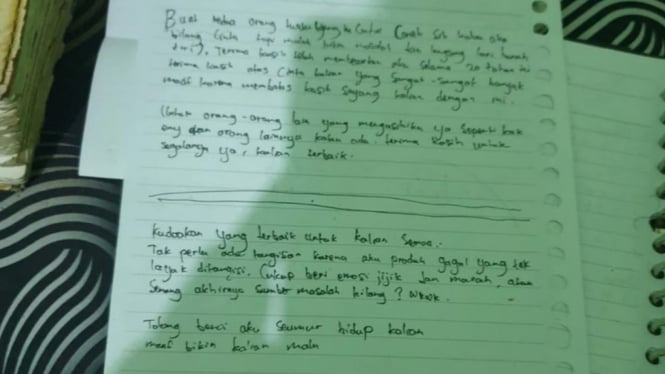 Buat kedua orang ku cinta
bilang cinta tapi malah bikin masalah dan langsung lari
, Terima kasih telah selama 20 tahun ini
terima kasih atas cinta kalian yang sangat-sangat banyak
maaf karena membalas kasih sayang kalian dengan ini.
Untuk orang-orang lain yang ya seperti kak
dan orang lainnya kalau ada. terima kasih untuk
segalanya ya, kalian terbaik.
Kudoakan yang terbaik untuk kalian semua.
Tak perlu ada tangisan karena aku produk gagal yang tak
layak ditangisi. Cukup beri emosi jijik dan marah, atau
senang akhirnya sumber masalah hilang? Wkwk.
Tolong benci aku seumur hidup kalian
maaf bikin kalian malu